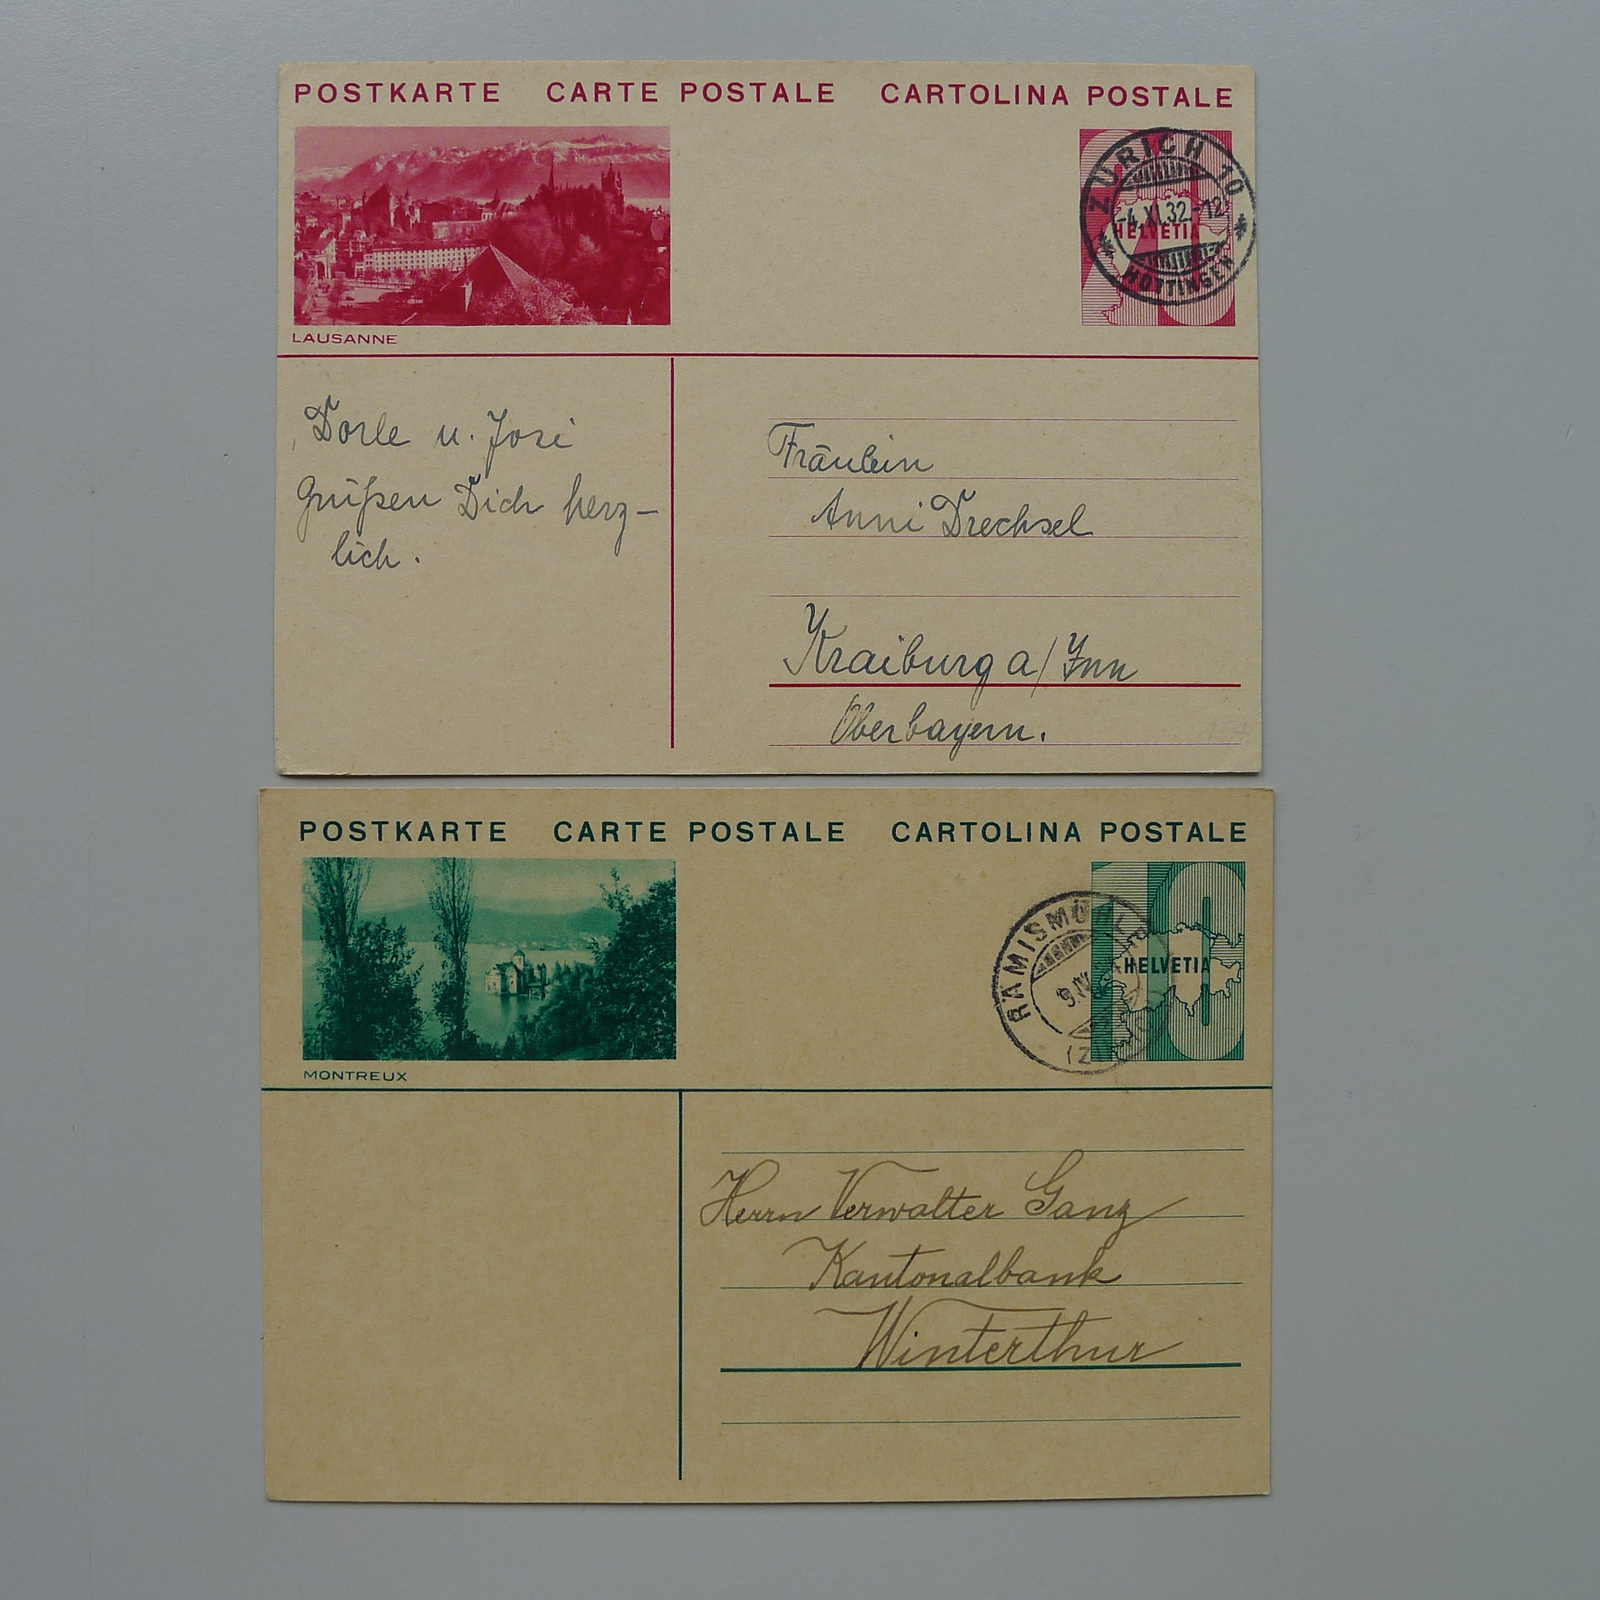 POSTKARTE CARTE POSTALE CARTOLINA POSTALE
ZÜRICH 10
-4.XI.32.-12
HELVETIA
HOTTINGEN
LAUSANNE
Dorle u. Josi
grüßen Dich herz-
lich.
Fräulein
Anni Drechsel
Kraiburg a/Inn
Oberbayern.
POSTKARTE CARTE POSTALE CARTOLINA POSTALE
RÄMISMÜHLE
9.IV
10
HELVETIA
MONTREUX
Herrn Verwalter Ganz
Kantonalbank
Winterthur